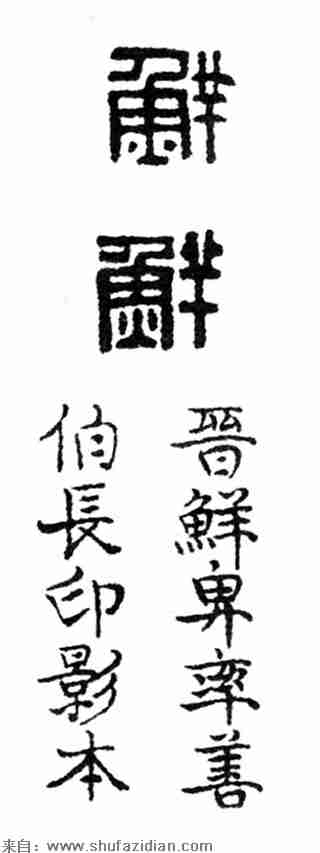 鮮
鮮
晉鮮卑率善
伯長印影本
来自：www.shufazidian.com